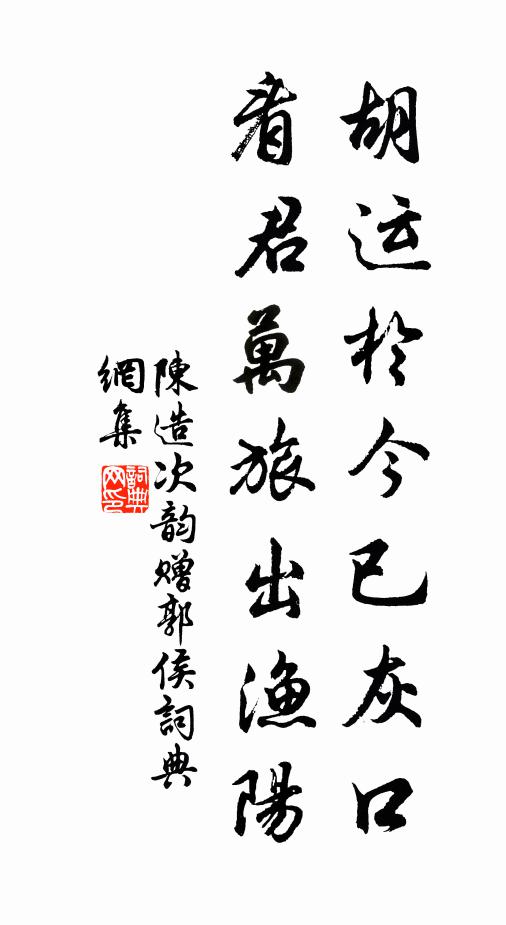 胡运於今已灰口
看君萬旅出漁陽
陳造次韵赠郭侯詞典
網集
詞典
网印